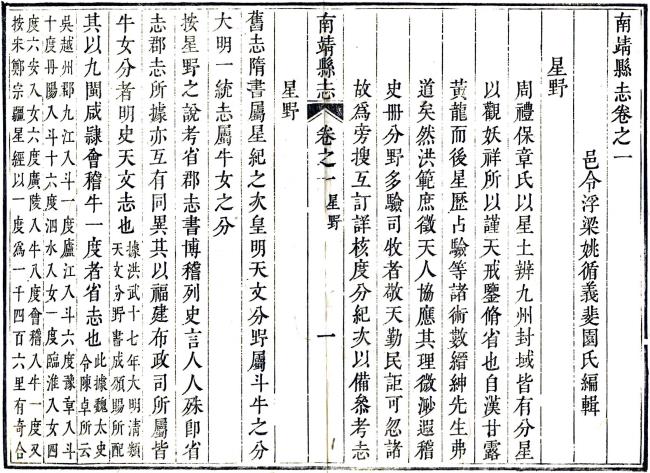 南靖縣志卷之一
邑令浮梁姚循義斐園氏編輯
星野
周禮保章氏以星土辨九州封域皆有分星
以觀妖祥所以謹天戒鑒脩省也自漢甘露
黃龍而後星歷占驗等諸術數縉紳先生弗
道矣然洪範庶徵天人協應其理微渺遐稽
史冊分野多驗司牧者敬天勤民詎可忽諸
故為旁搜互訂詳核度分紀次以備叅考志
星野
南靖縣志
卷之一
星野
一
舊志隋書屬星紀之次皇明天文分野屬斗牛之分
大明一統志屬牛女之分
按星野之說考省郡志書博稽列史言人人殊即省
志郡志所據亦互有同異其以福建布政司所屬皆
牛女分者明史天文志也
據洪武十七年大明清類
天文分野書成頒賜所配
其以九閩咸隷會稽牛一度者省志也
此據魏太史
令陳卓所云
吳越州郡九江入斗一度廬江入斗六度豫章入斗
十度丹陽入斗十六度泗水入女一度臨淮入女四
度六安入女六度廣陵入牛八度會稽入牛一度又
按朱鄭宗疆星經以一度為一千四百六里有奇合